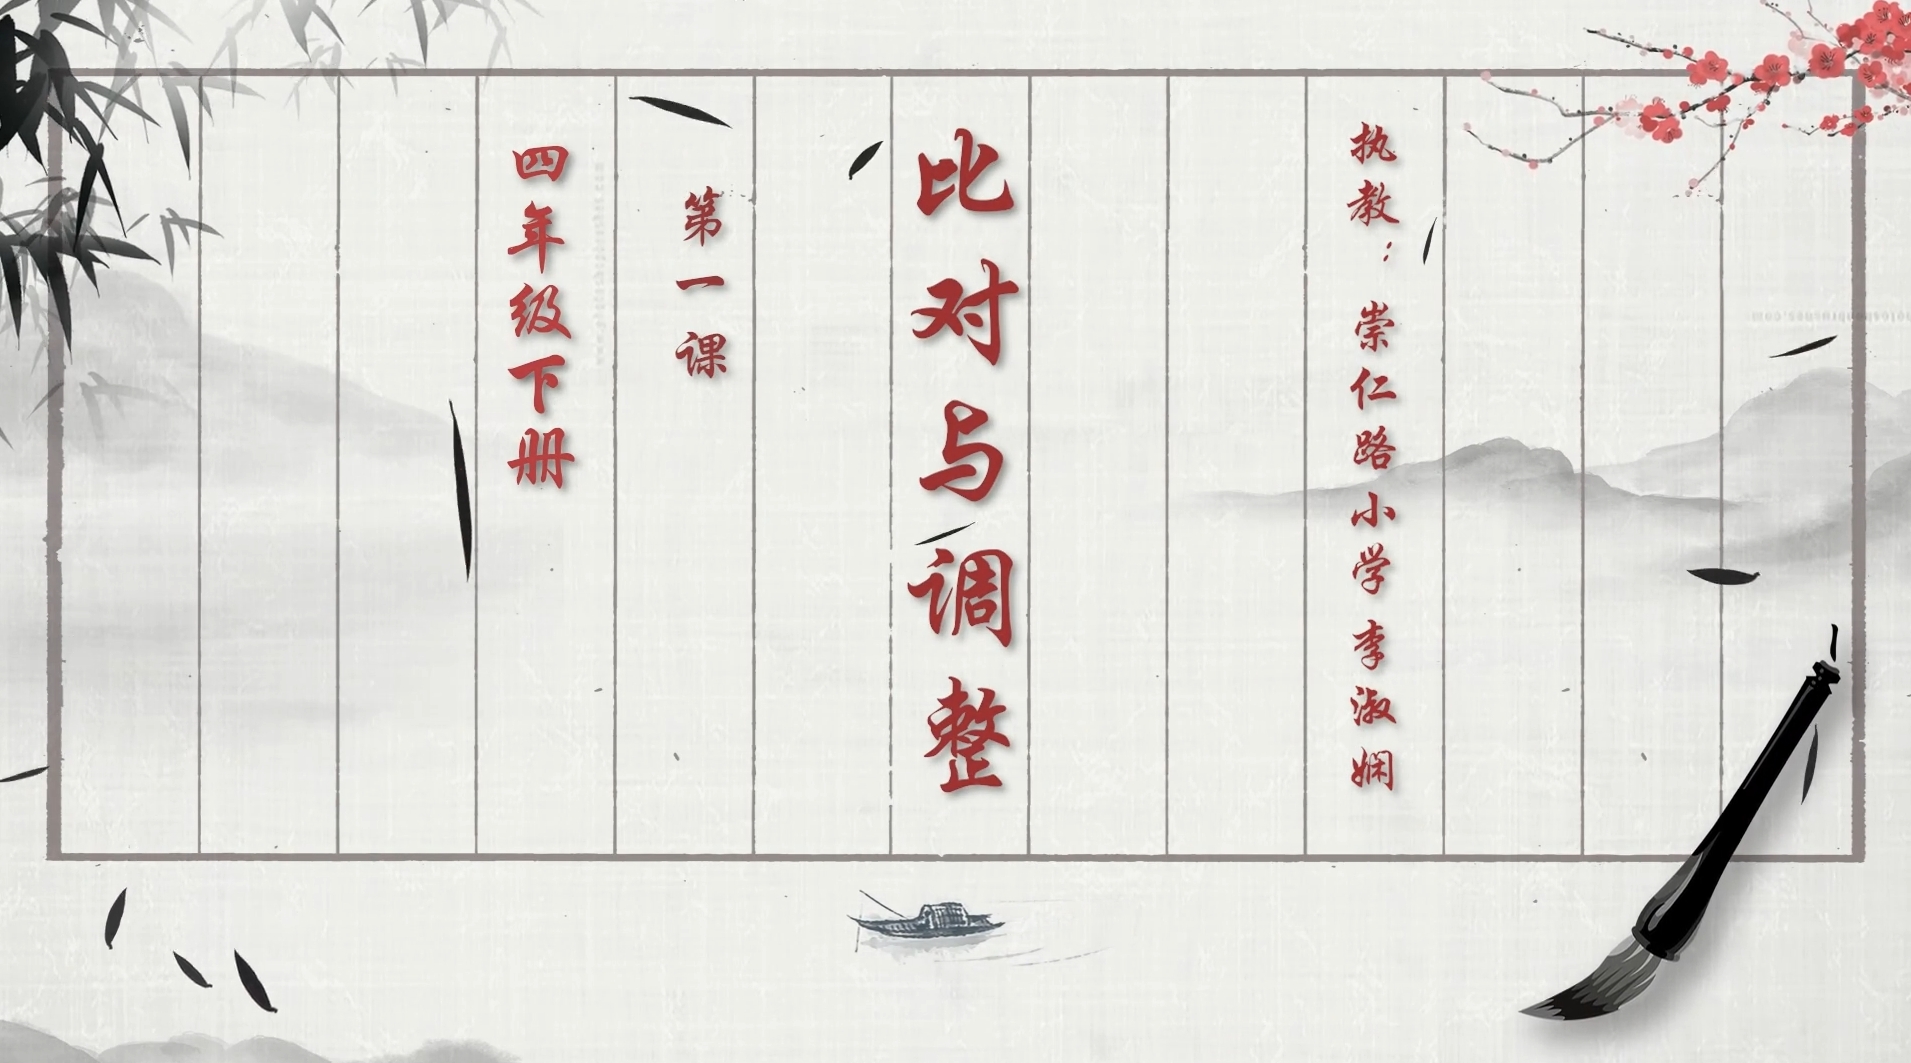 四年级下册
第一课
比对与调整
执教：崇仁路小学 李淑娴